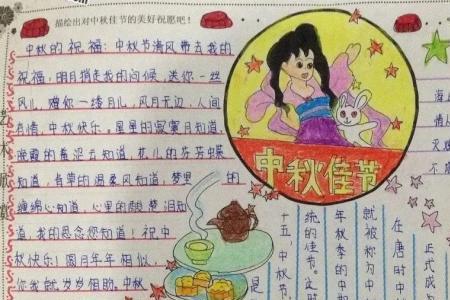 描绘出对中秋佳节的美好祝愿吧！
中秋的祝福：中秋节清风带去我的
祝福，明月捎走我的问候，送你一丝
风儿，赠你一缕月儿，风月无边，人间
有情，中秋快乐。星星的寂寞月知道，
晚霞的羞涩云知道，花儿的芬芳蝶
知道，青草的温柔风知道，梦里 的
缠绵心知道，心里的酸楚泪知
道，我的思念您知道！祝中
秋快乐！圆月年年相似，
你我岁岁相盼。中秋
中秋佳节
海
情人
天
正式成
在唐时中
就被称为中
年秋季的中期
统的佳节。这时
十五，中秋节，
是
艺术